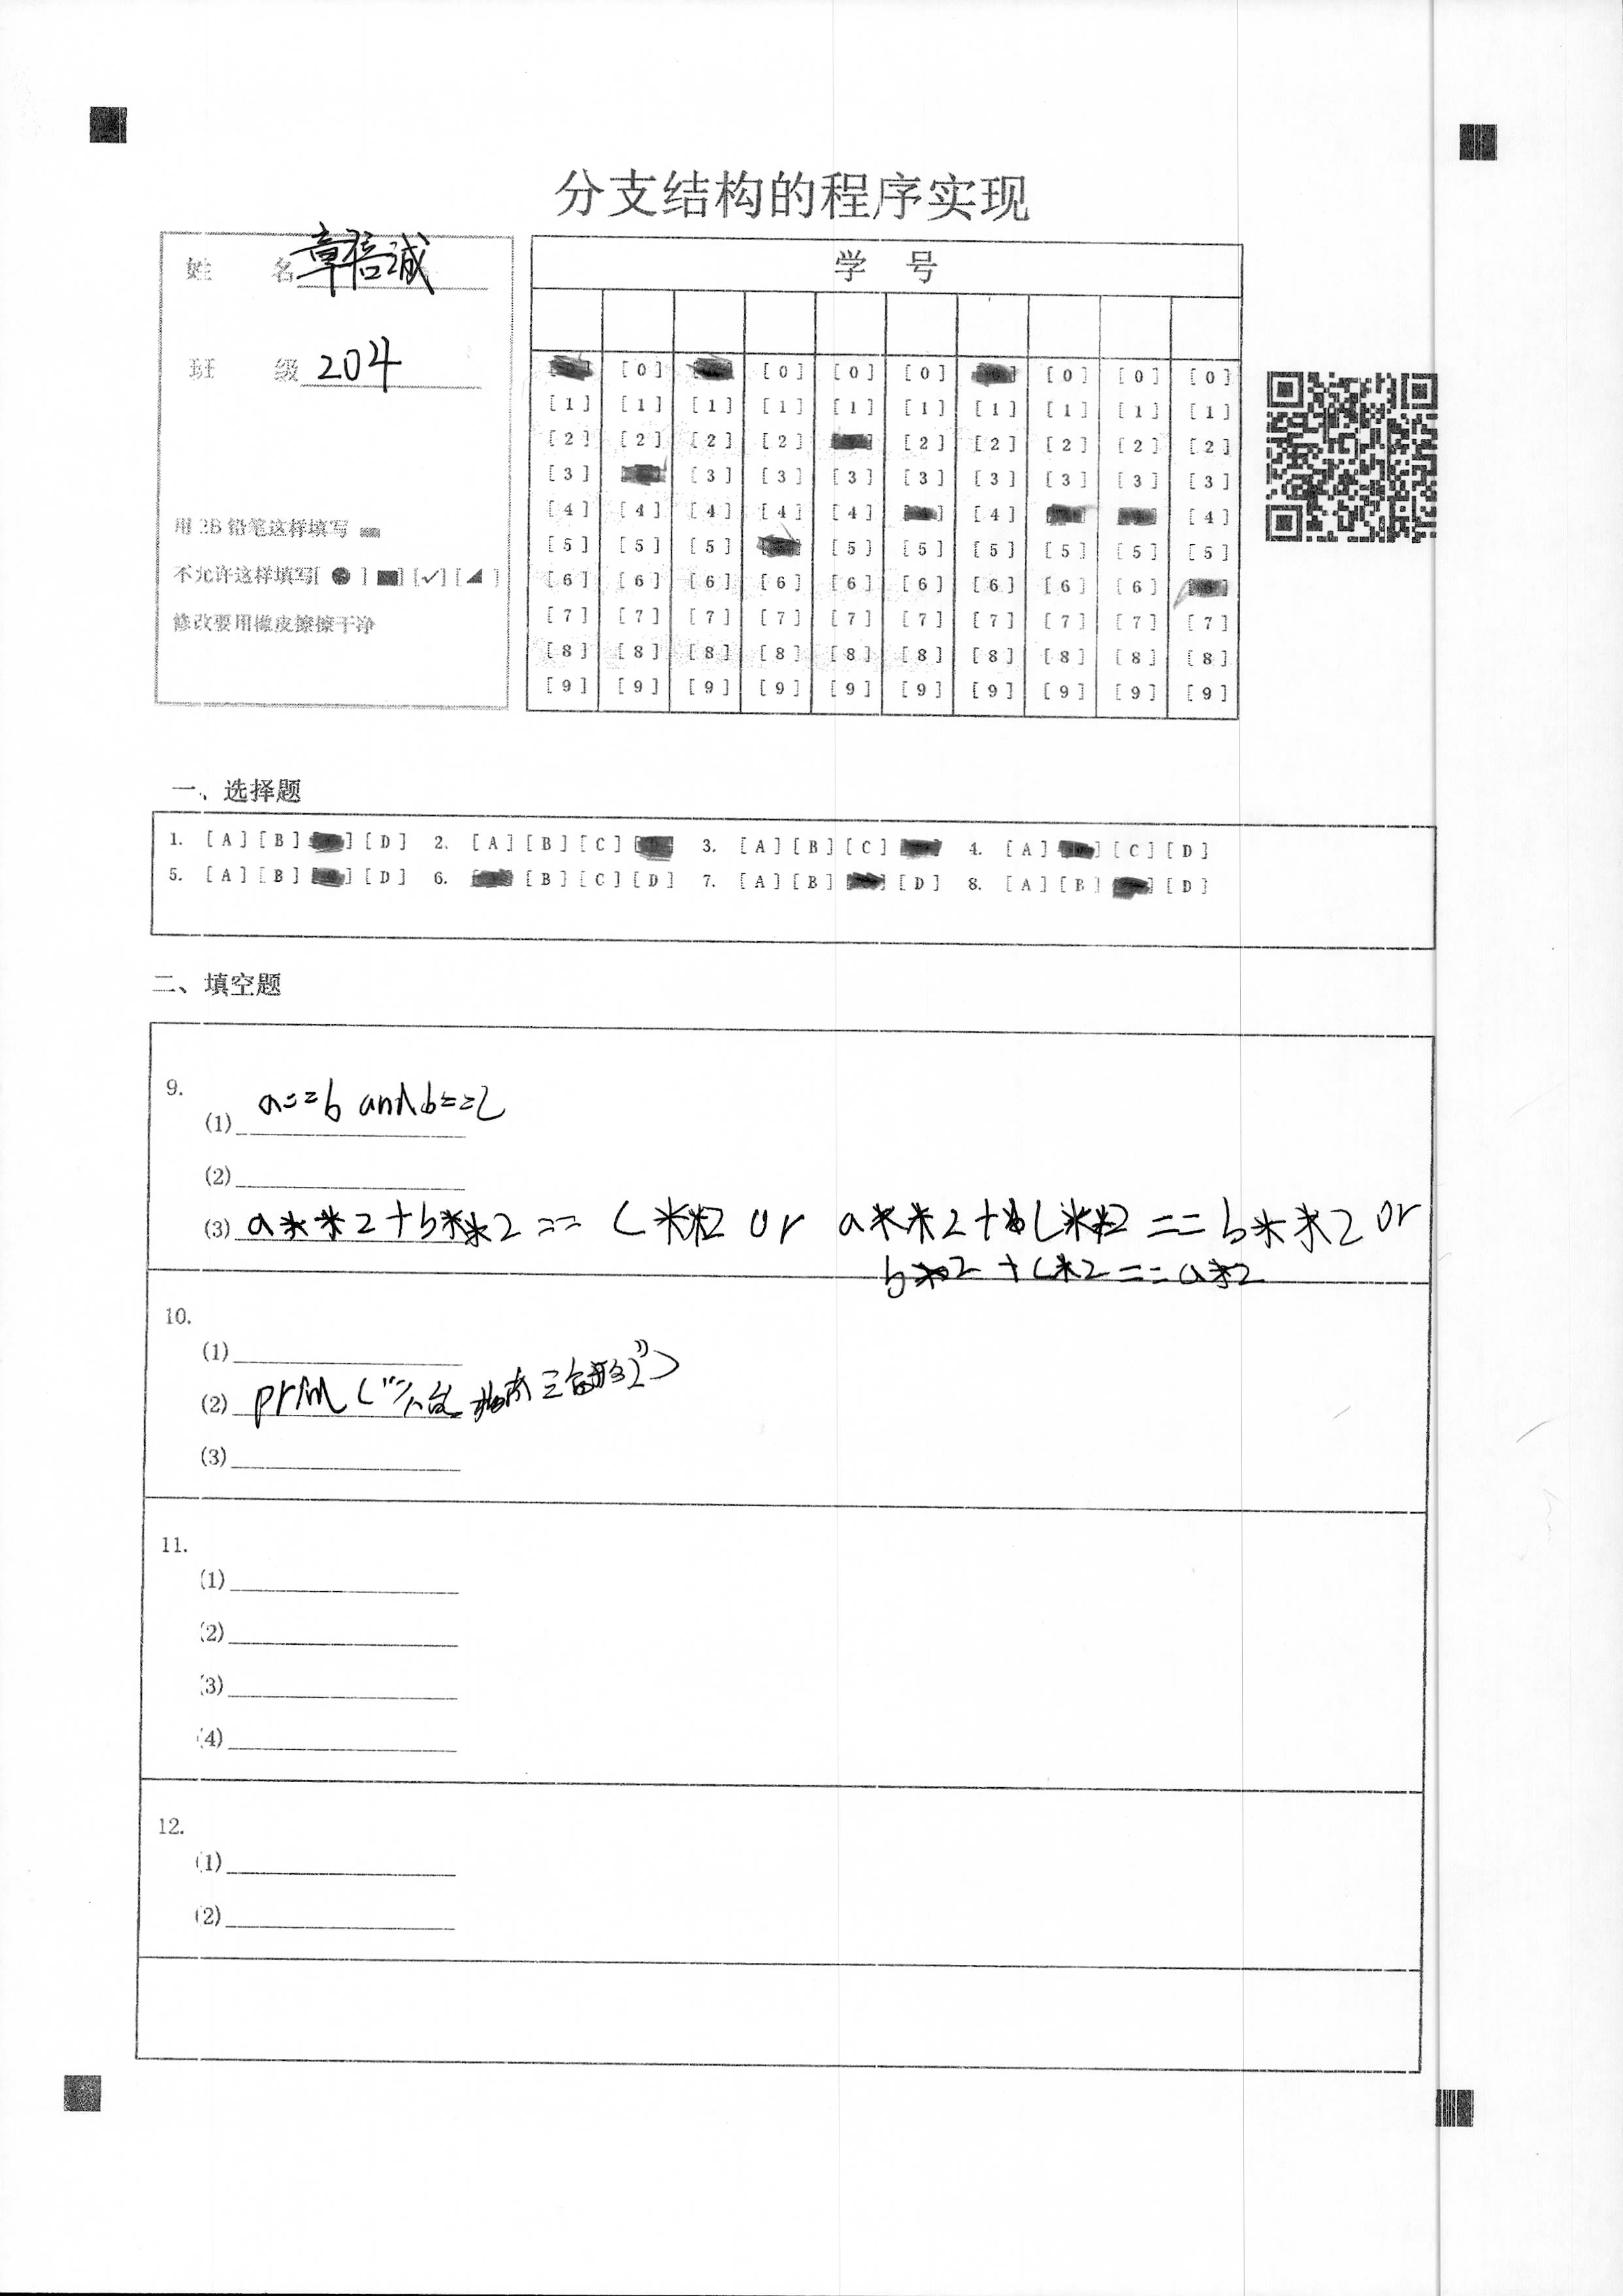 分支结构的程序实现
姓 名 章倍诚
班 级 204
用 2B 铅笔这样填写
不允许这样填写[ ● ] ■] [✓] [◢ ]
修改要用橡皮擦擦干净
学 号
[0] [0] [0] [0] [0] [0] [0]
[1] [1] [1] [1] [1] [1] [1] [1] [1] [1]
[2] [2] [2] [2] [2] [2] [2] [2] [2]
[3] [3] [3] [3] [3] [3] [3] [3] [3]
[4] [4] [4] [4] [4] [4] [4]
[5] [5] [5] [5] [5] [5] [5] [5] [5]
[6] [6] [6] [6] [6] [6] [6] [6] [6]
[7] [7] [7] [7] [7] [7] [7] [7] [7] [7]
[8] [8] [8] [8] [8] [8] [8] [8] [8] [8]
[9] [9] [9] [9] [9] [9] [9] [9] [9] [9]
一、选择题
1. [A] [B] [D] 2. [A] [B] [C] 3. [A] [B] [C] 4. [A] [C] [D]
5. [A] [B] [D] 6. [B] [C] [D] 7. [A] [B] [D] 8. [A] [B] [D]
二、填空题
9.
(1) a==b and b==c
(2)
(3) a**2+b**2 == c**2 or a**2+c**2 == b**2 or
b**2 + c**2 == a**2
10.
(1)
(2) print ("不能构成三角形")
(3)
11.
(1)
(2)
(3)
(4)
12.
(1)
(2)